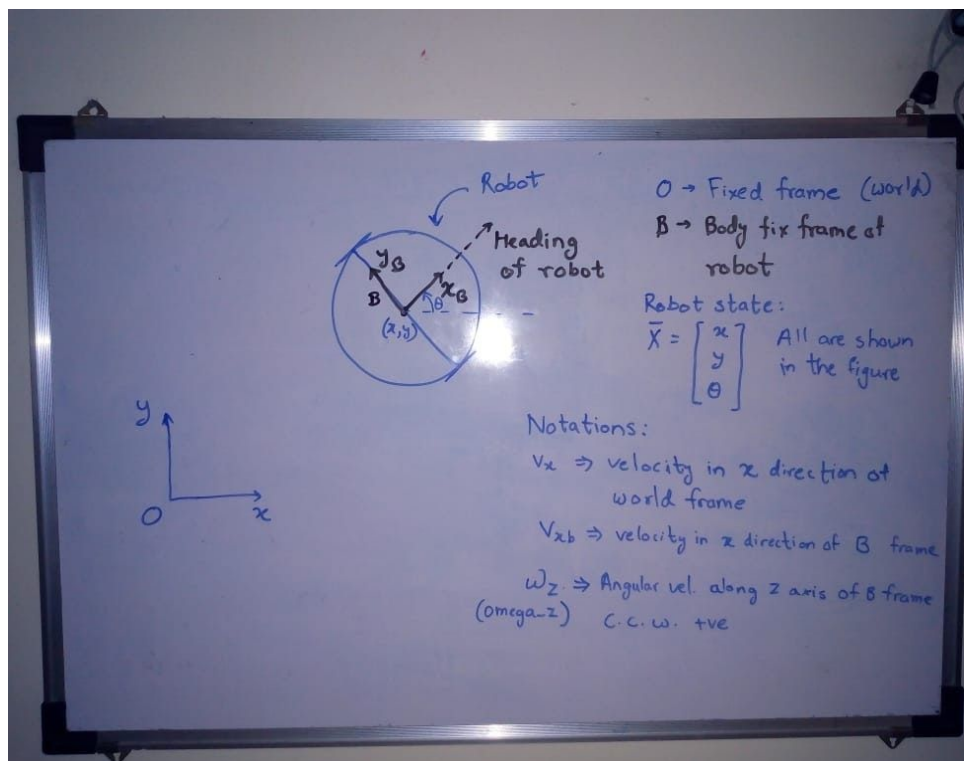 Robot
Heading
of robot
y_B
x_B
B
θ
(x,y)
y
O
x
O → Fixed frame (world)
B → Body fix frame of
robot
Robot state:
X̄ = [x y θ] All are shown
in the figure
Notations:
Vx ⇒ velocity in x direction of
world frame
Vxb ⇒ velocity in x direction of B frame
ωz ⇒ Angular vel. along z axis of B frame
(omega_z) C.C.W. +ve